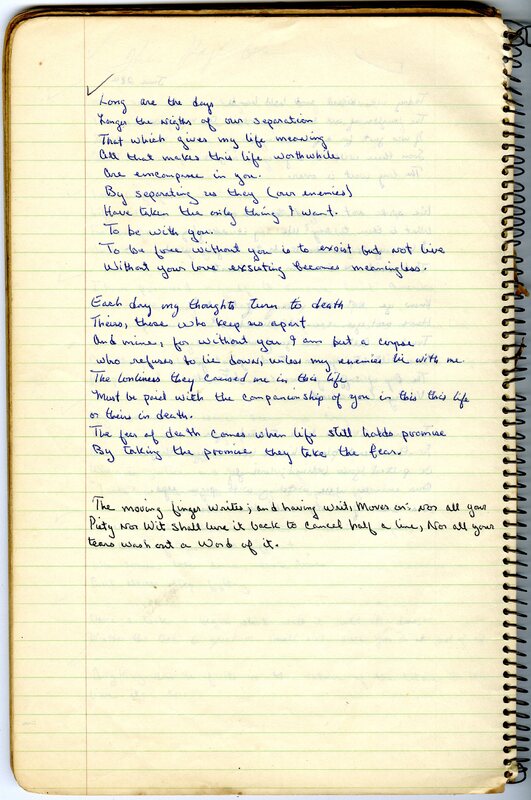 Long are the days
Longer the Nigths of our separation
That which gives my life meaning
All that makes this life worthwhile
Are emcompase in you.
By separating us they (our enemies)
Have taken the only thing I want.
To be with you.
To be force without you is to exsist but not live
Without your love exsisting becomes meaningless.
Each day my thoughts turn to death
Theirs, those who keep us apart
And mine, for without you I am but a corpse
who refuses to lie down, unless my enemies lie with me.
The lonliness they caused me in this life
Must be paid with the companionship of you in this this life
or theirs in death.
The fear of death comes when life still holds promise
By taking the promise they take the fear.
The moving finger writes; and having writ, Moves on: Nor all your
Piety Nor Wit Shall lure it back to Cancel half a line, Nor all your
tears wash out a Word of it.